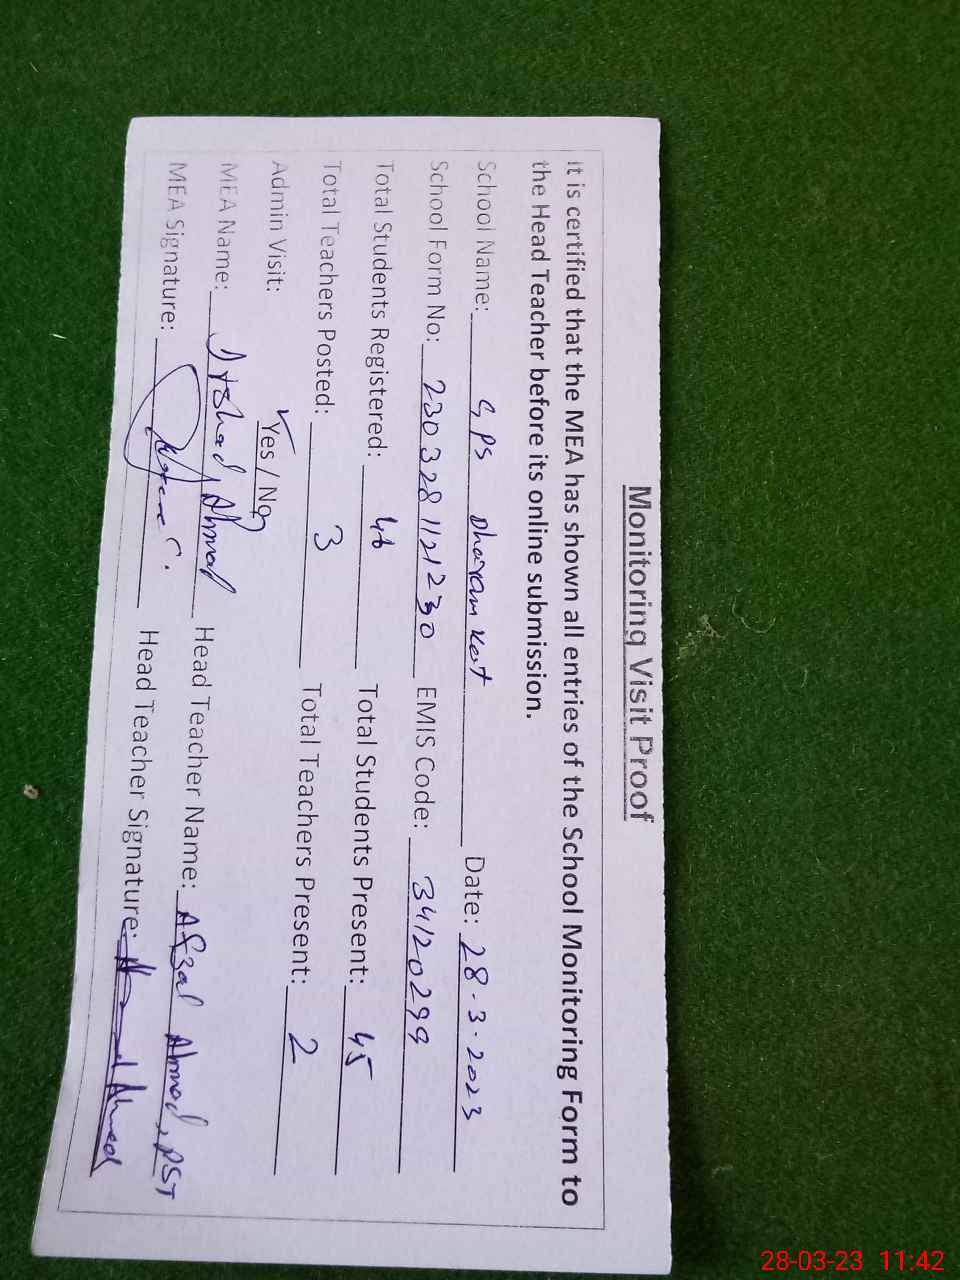 Monitoring Visit Proof
It is certified that the MEA has shown all entries of the School Monitoring Form to
the Head Teacher before its online submission.
School Name: GPS Dharam Kot Date: 28-3-2023
School Form No: 230328 1121230 EMIS Code: 34120299
Total Students Registered: 46 Total Students Present: 45
Total Teachers Posted: 3 Total Teachers Present: 2
Admin Visit: Yes / No
MEA Name: Irshad Ahmad Head Teacher Name: Afzal Ahmad, PST
MEA Signature: Head Teacher Signature: Ahmad
28-03-23 11:42